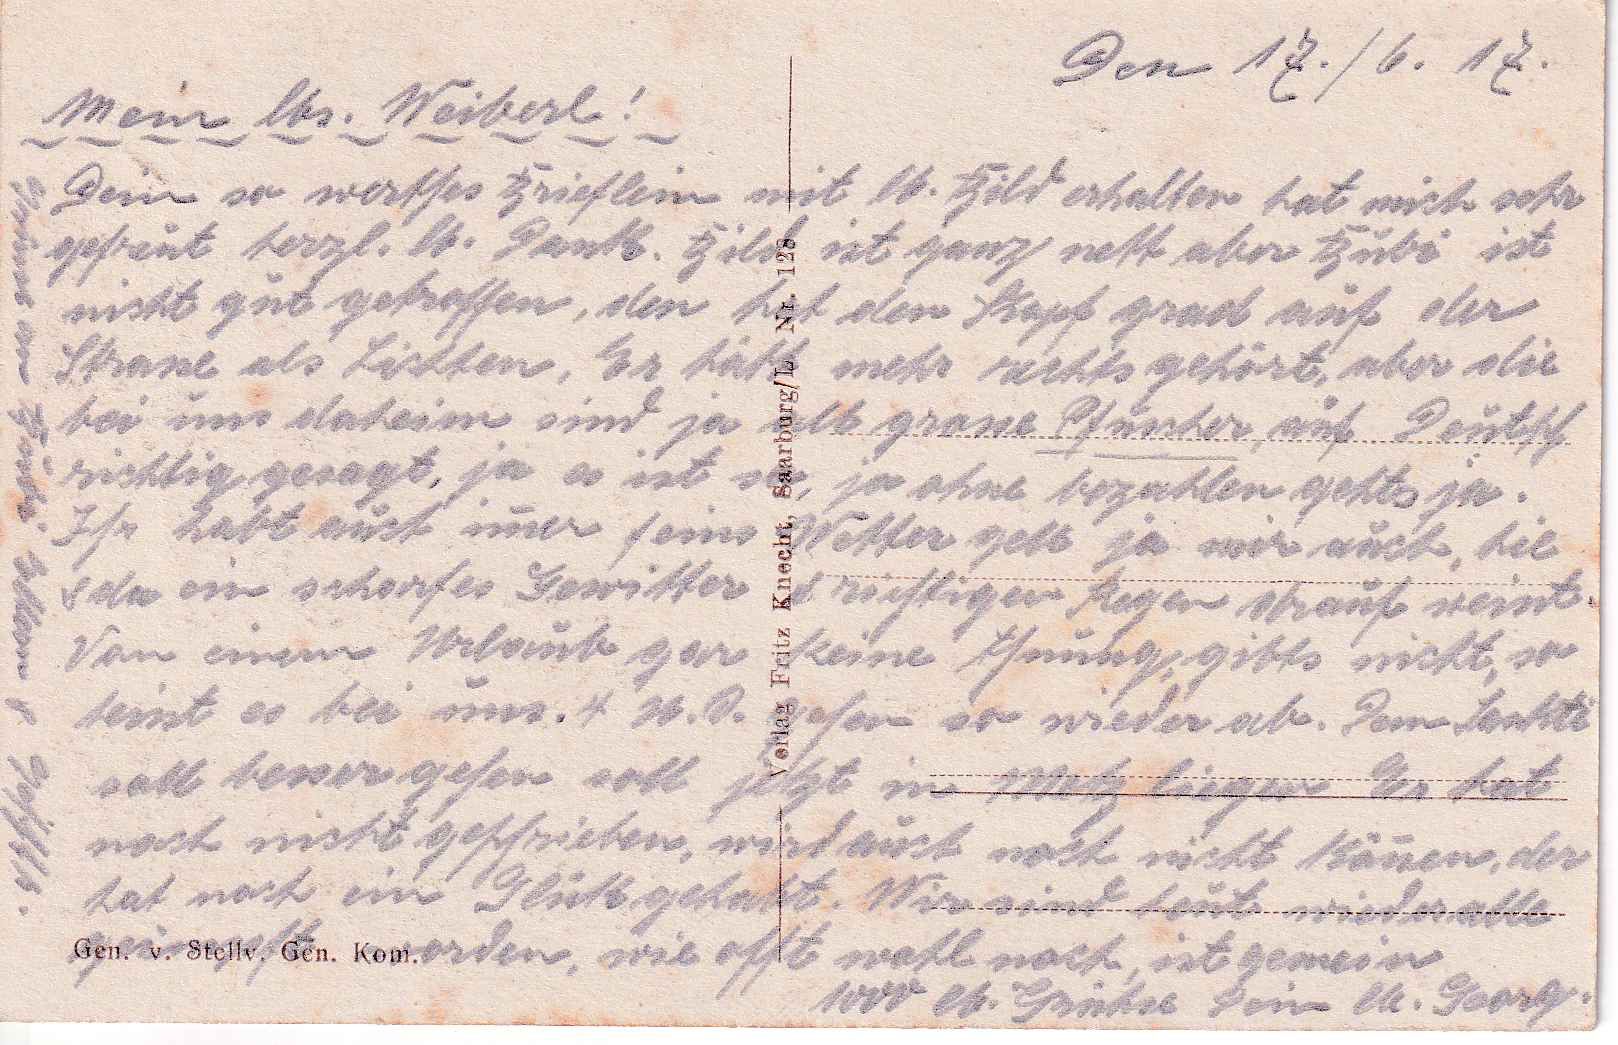 Den 17./6. 17.
Mein lbs. Weiberl!
Dein so werthes Brieflein mit lb. Bild erhalten hat mich sehr
gefreut herzl. lb. Dank. Bild ist ganz nett aber Bubi ist
nicht gut getroffen, den hat den Kopf grad auf der
als Er hätt mehr nichts gehört, aber die
bei uns daheim sind ja alt grosse Pfuscher, auf Deutsch
richtig gesagt, ja es ist so, ja ohne bezahlen gehts ja.
Ihr habt auch imer feins Wetter gelt ja wir auch, hie
& da ein scharfes Gewitter & richtigen Regen drauf
Von einem Urlaub gar keine gibts nicht, so
heist es bei uns. 4 so wieder ab. Dem
soll besser gehen soll jetzt in Metz liegen Er hat
noch nicht geschrieben, wird auch noch nicht könen, der
hat noch ein Glük gehabt. Wir sind heute wieder alle
geimpft worden, wie offt wohl noch, ist gemein
1000 lb. Grüsse Dein lb. Georg.
Verlag Fritz Knecht, Saarburg/L. Nr. 128
Gen. v. Stellv. Gen. Kom.